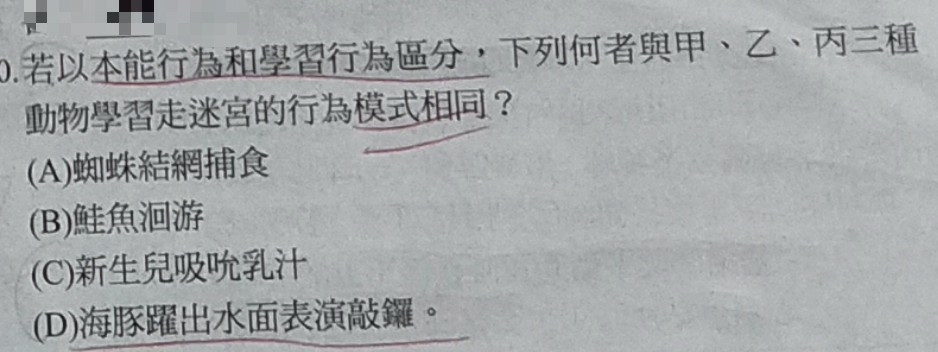 0.若以本能行為和學習行為區分，下列何者與甲、乙、丙三種
動物學習走迷宮的行為模式相同？
(A)蜘蛛結網捕食
(B)鮭魚洄游
(C)新生兒吸吮乳汁
(D)海豚躍出水面表演敲鑼。